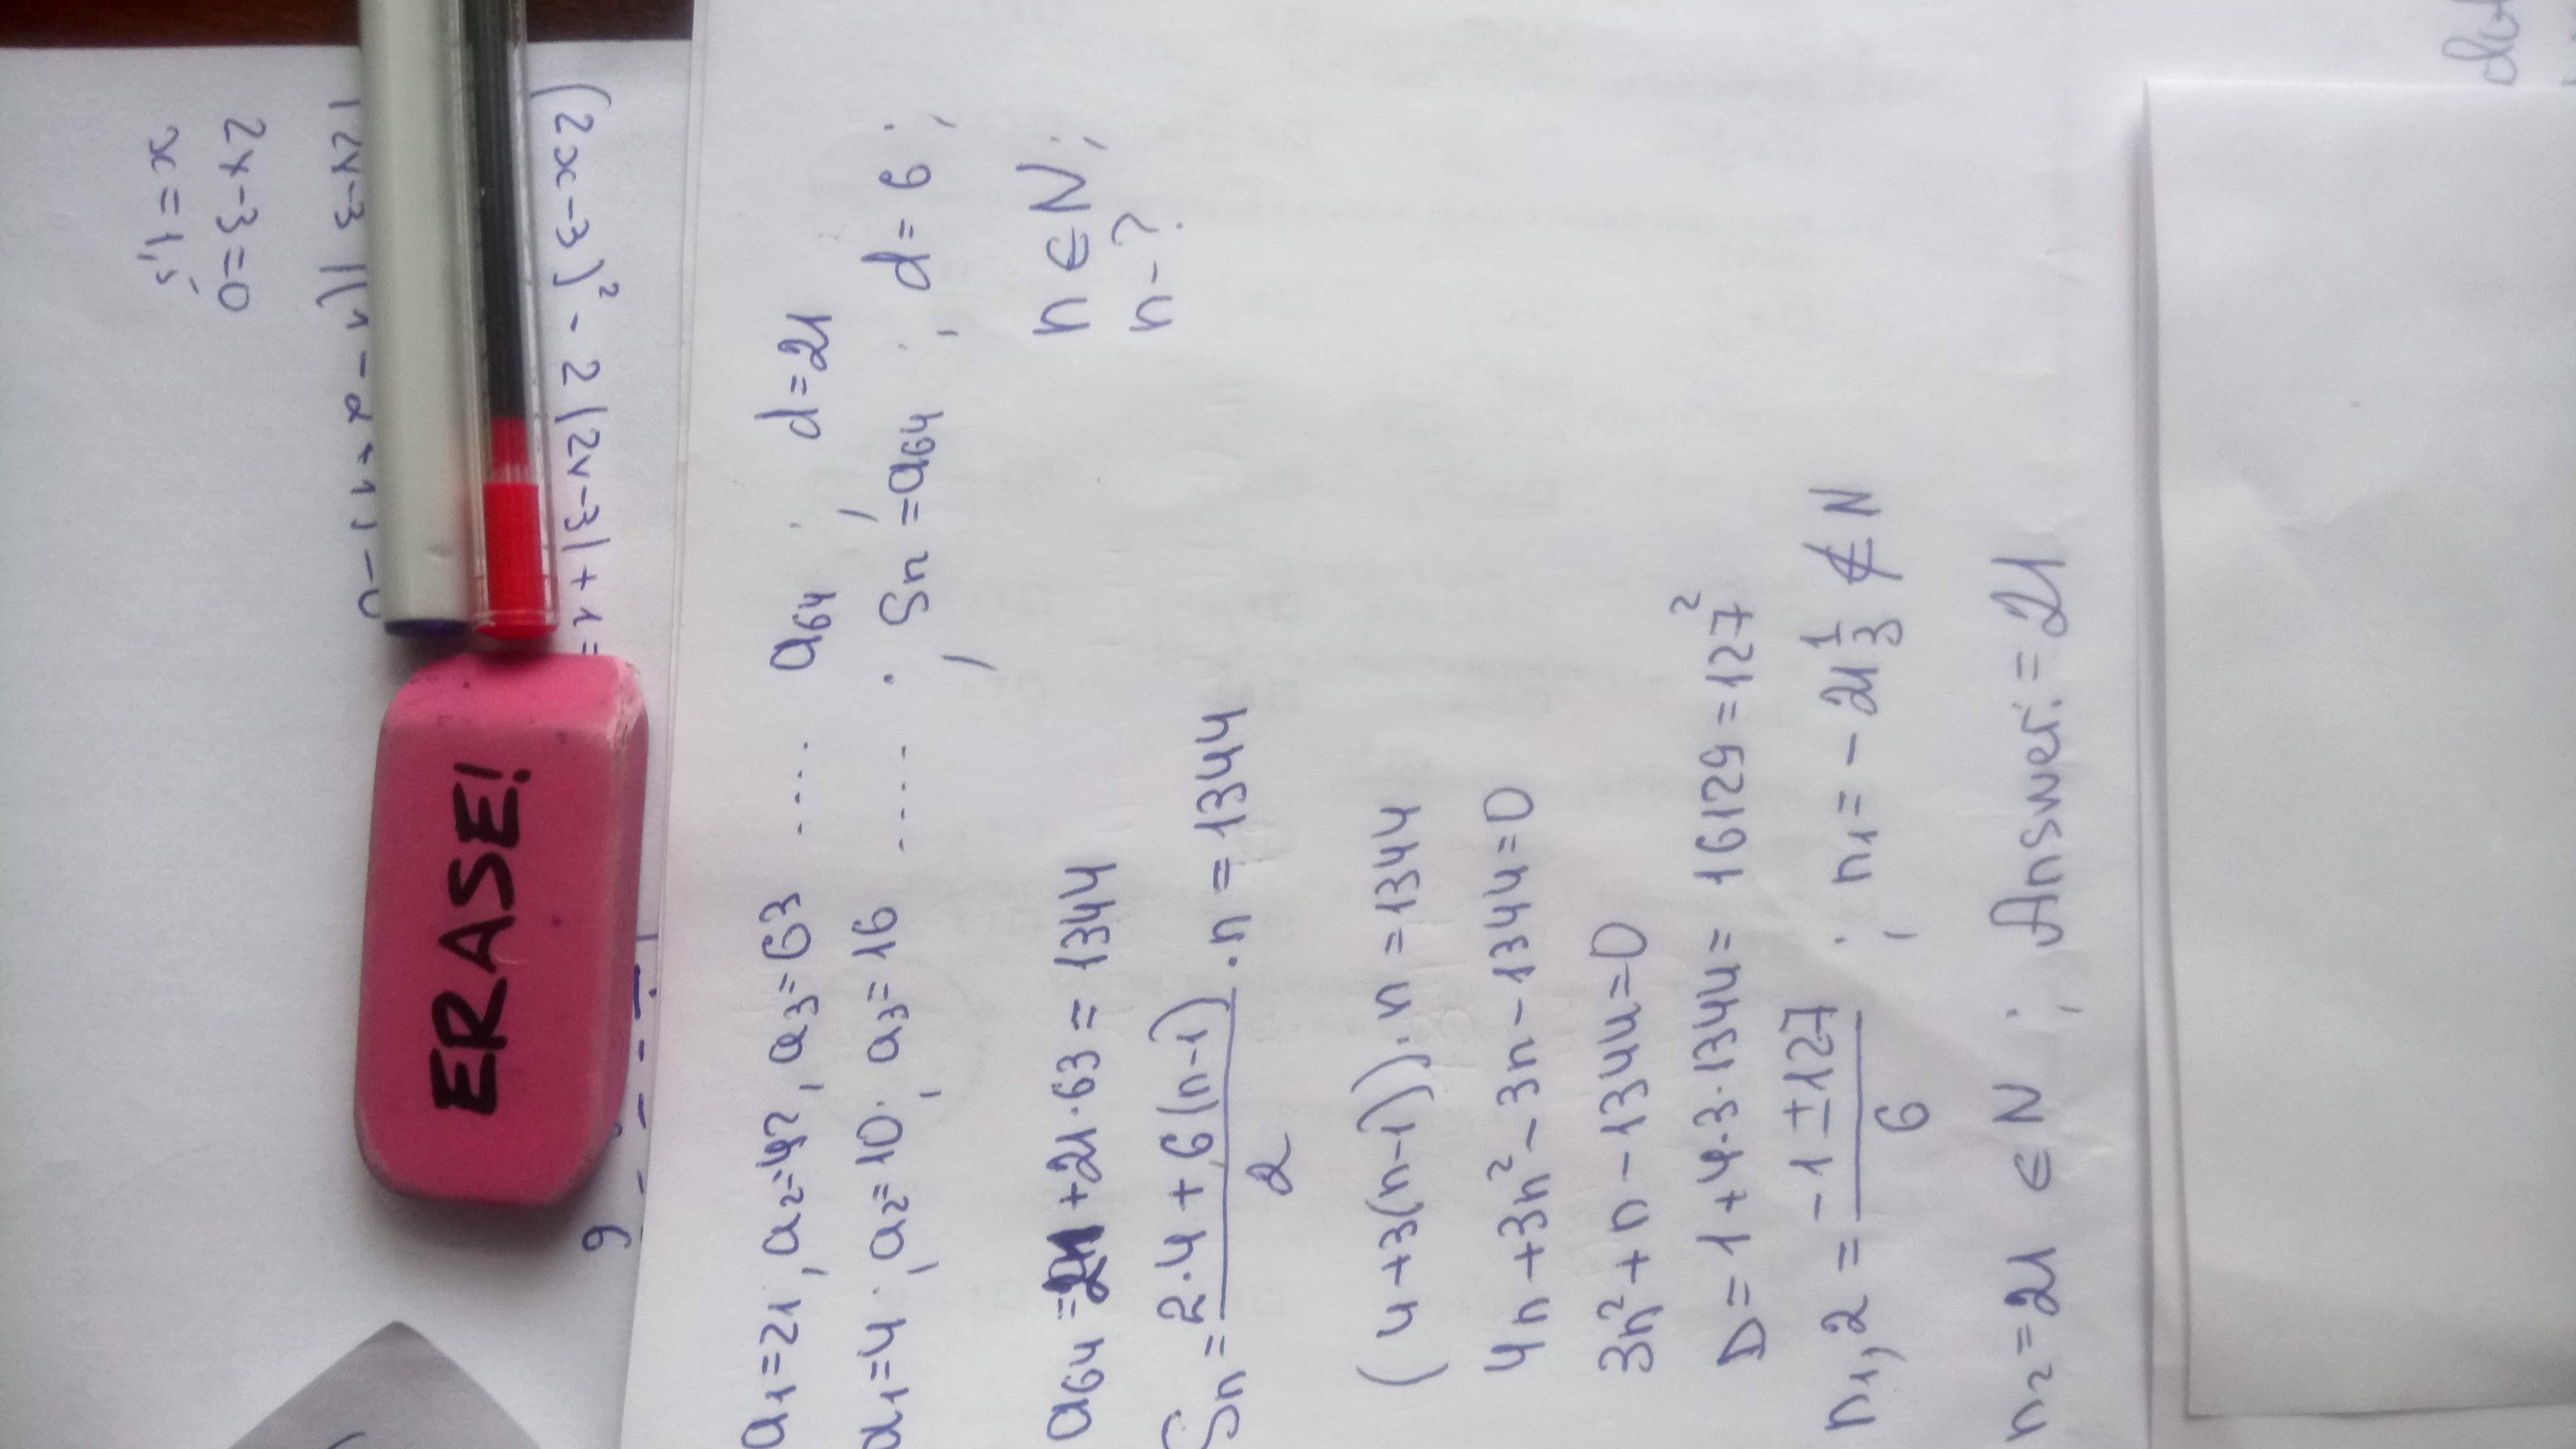 a₁=21, a₂=42, a₃=63 ..... a₆₄ d=21
a₁=4; a₂=10; a₃=16 ..... ; Sn=a₆₄; d=6;
a₆₄=21+21·63=1344 n∈N;
Sn=(2·4+6(n-1))/2·n=1344 n-?
(4+3(n-1))·n=1344
4n+3n²-3n-1344=0
3n²+n-1344=0
D=1+4·3·1344=16129=127²
n₁,₂=(-1±127)/6; n₁=-21 1/3 ∉ N
n₂=21 ∈ N; Answer:=21
ERASE!
(2x-3)²-2|2x-3|+1=
2x-3=0
x=1,5